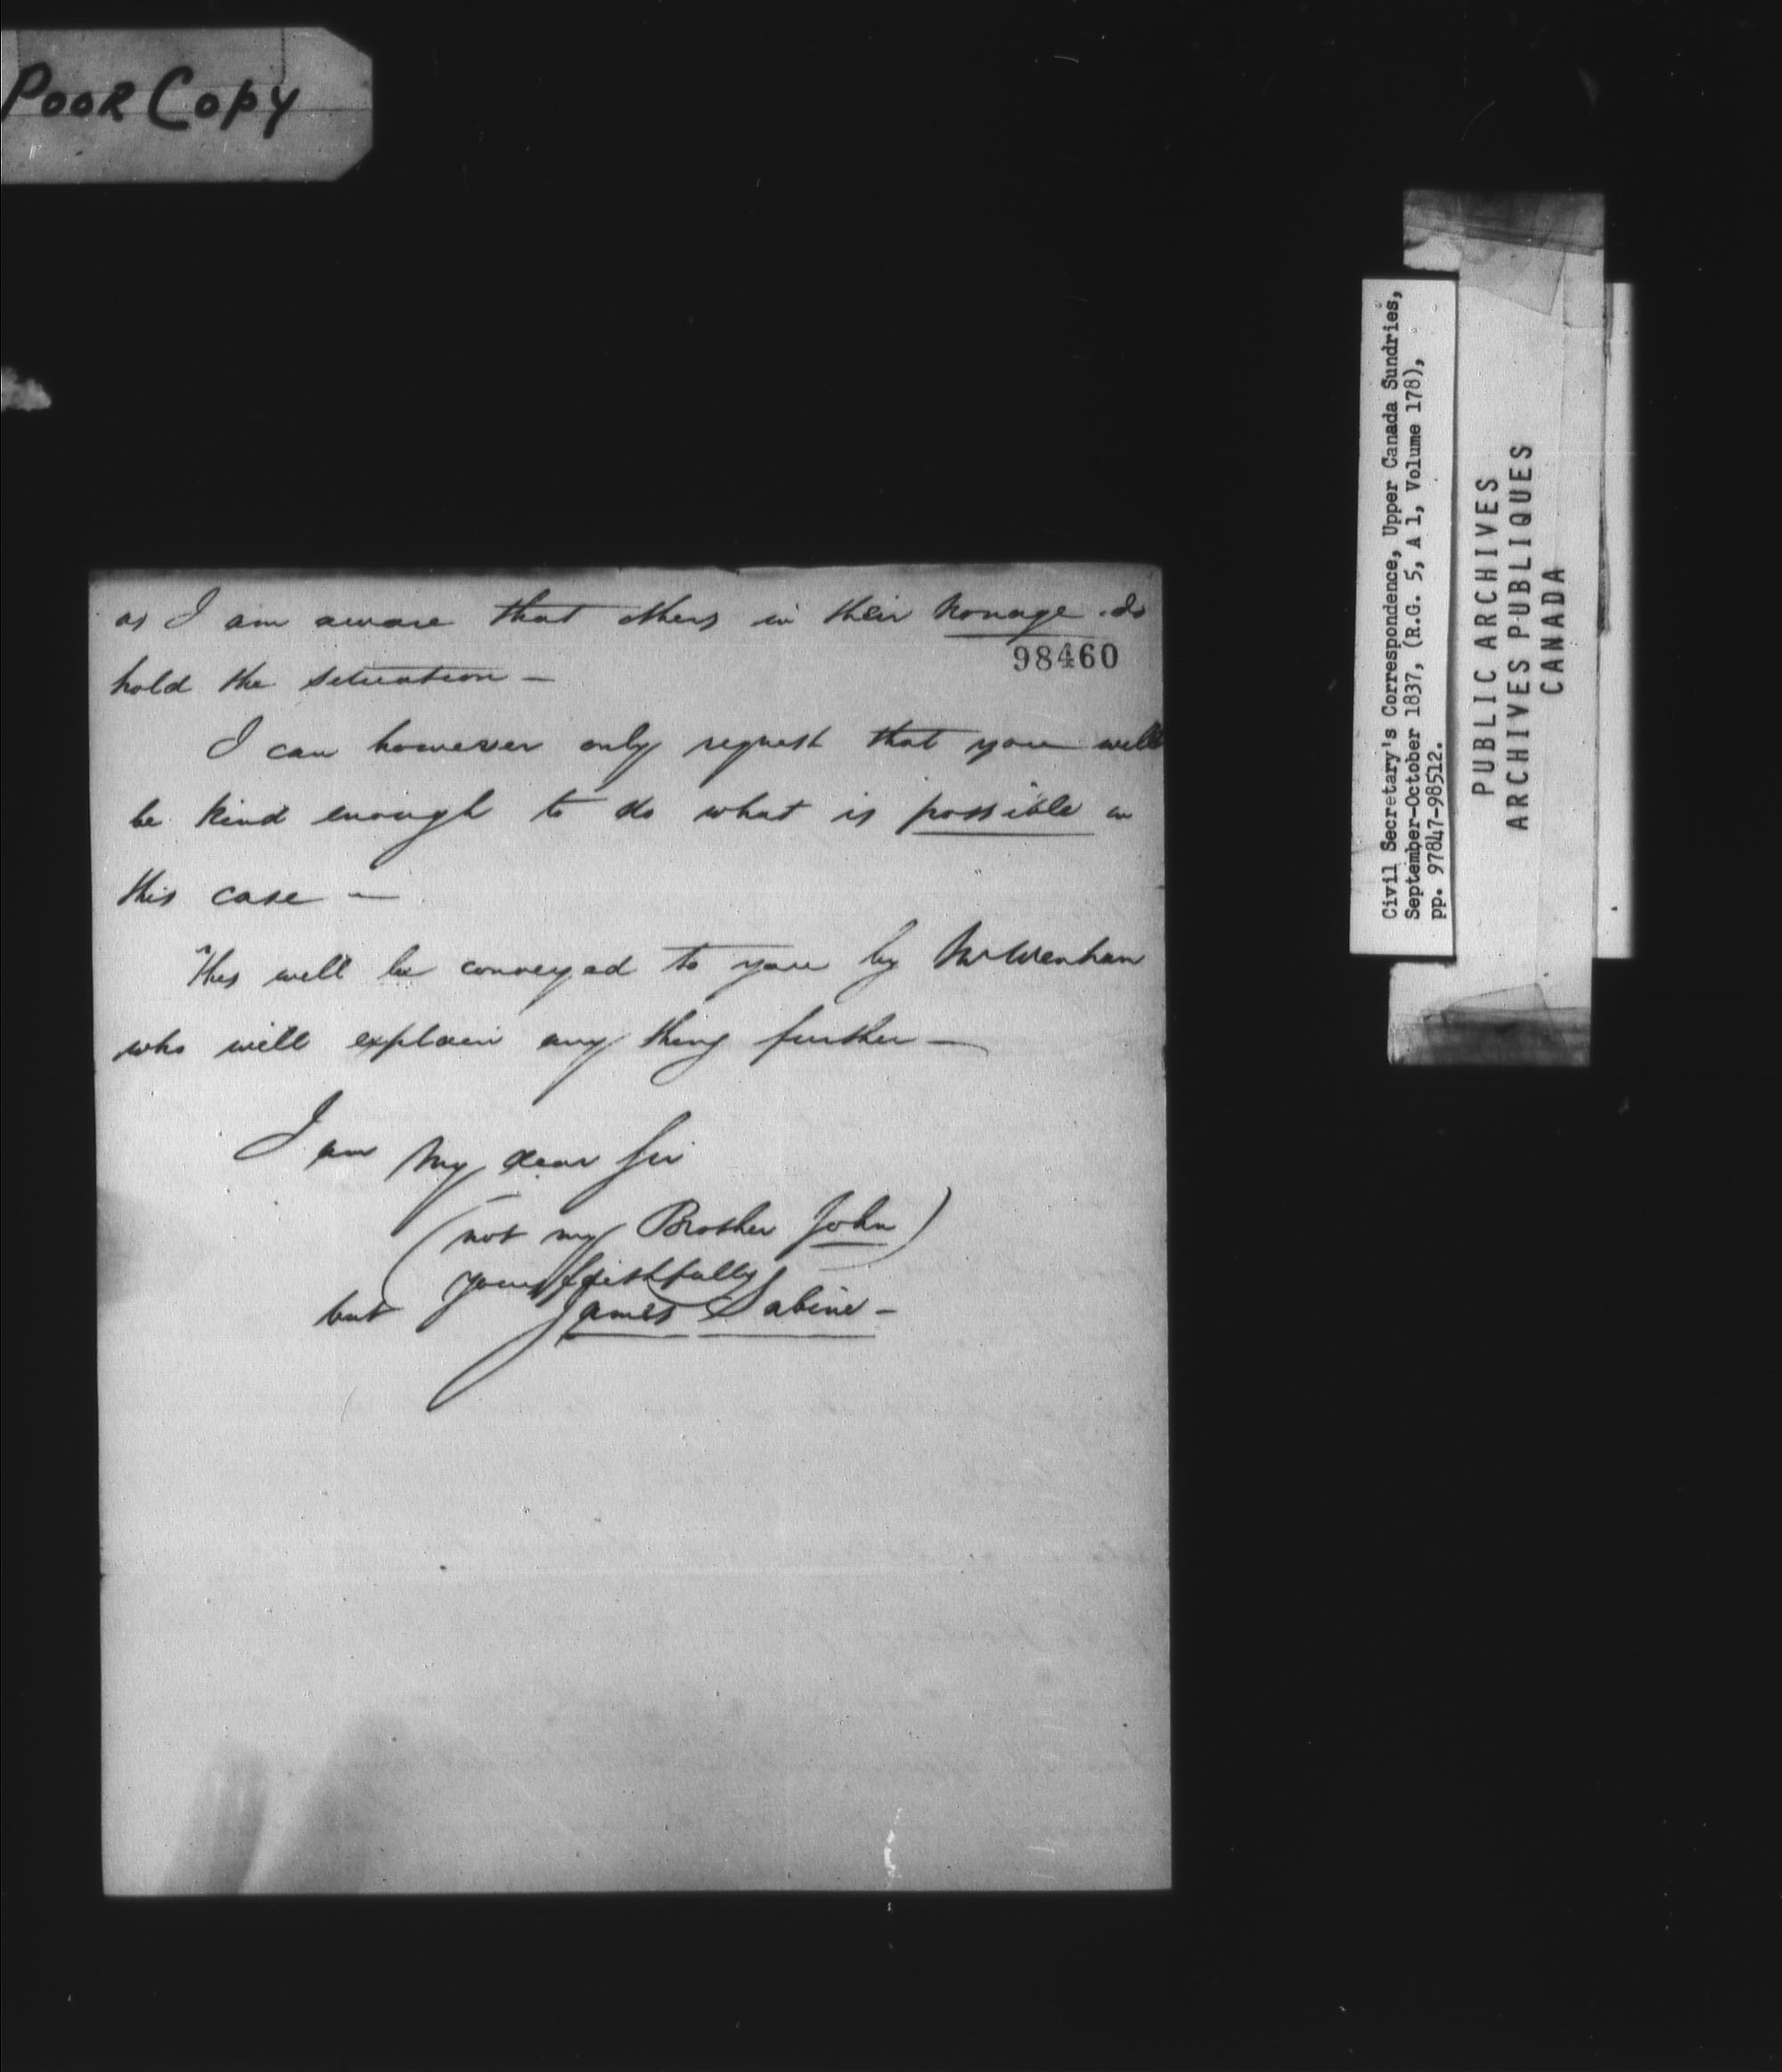 Poor Copy
as I am aware that others in their Nonage do
98460
hold the situation —
I can however only request that you will
be kind enough to do what is possible in
this case —
This will be conveyed to you by Mr Wenham
who will explain any thing further —
I am My dear Sir
(not my Brother John)
yours faithfully
but James Sabine —
Civil Secretary's Correspondence, Upper Canada Sundries,
September-October 1837, (R.G. 5, A 1, Volume 178),
pp. 97847-98512.
PUBLIC ARCHIVES
ARCHIVES PUBLIQUES
CANADA